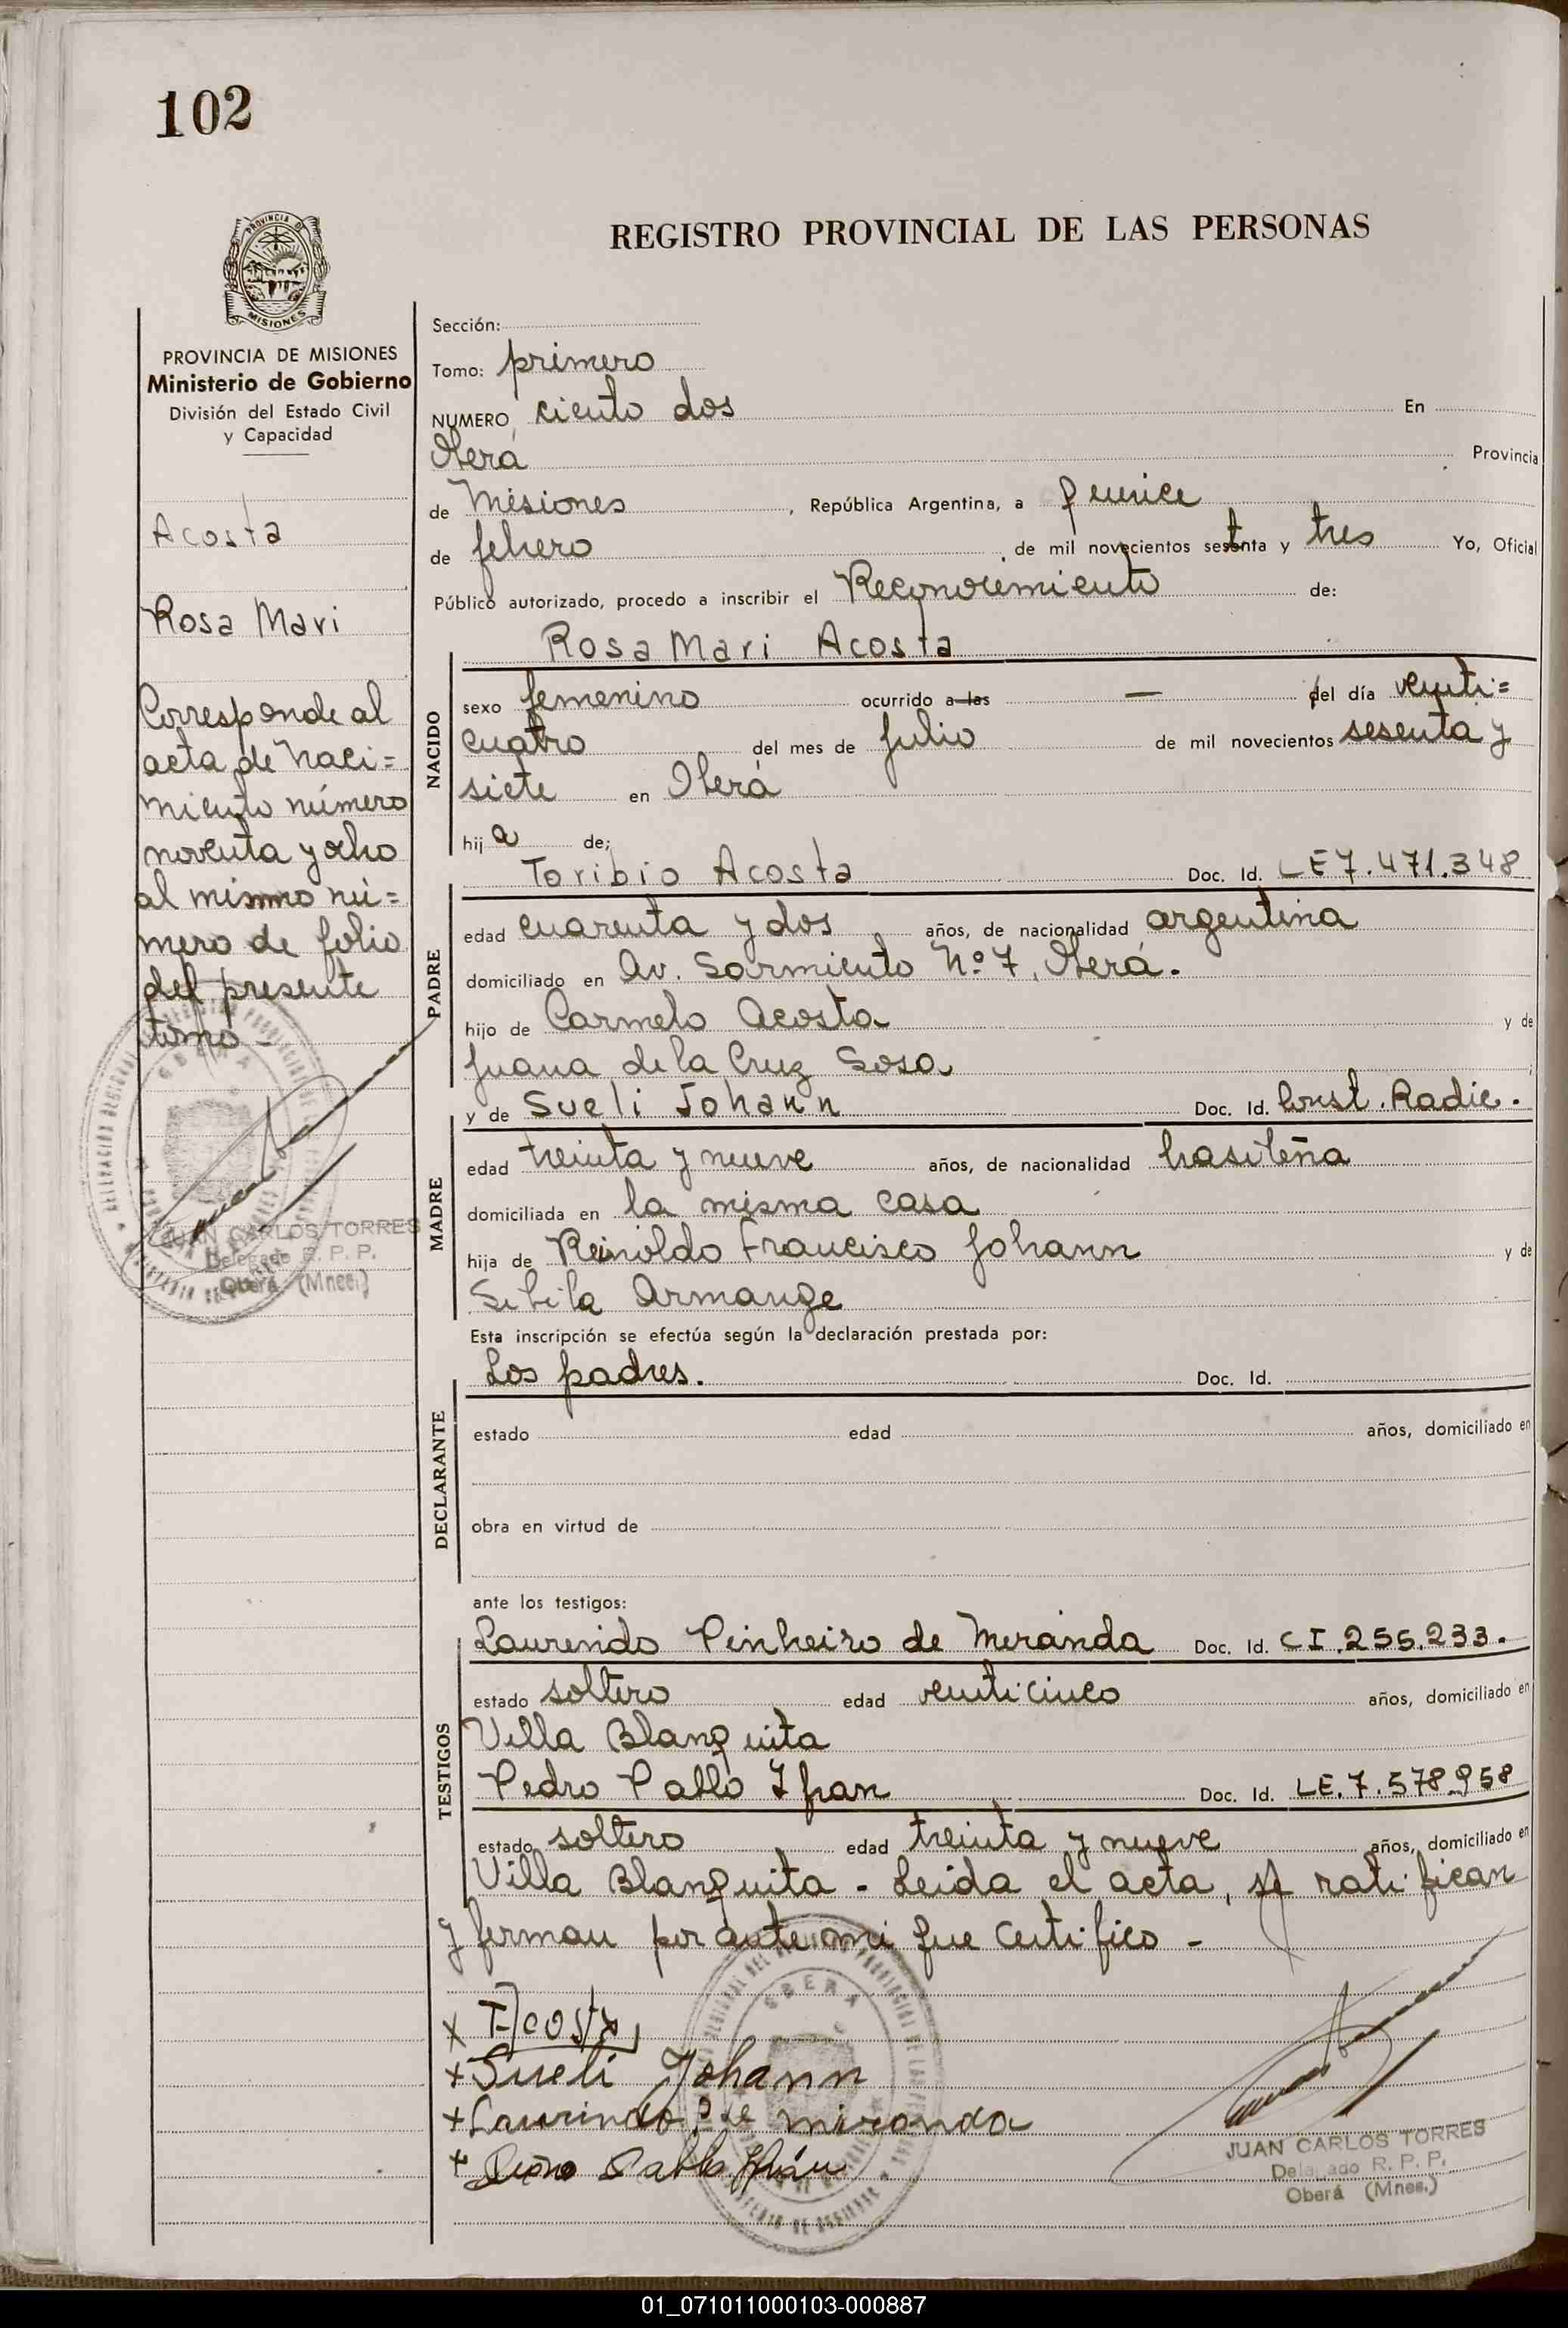 102
PROVINCIA DE
MISIONES
REGISTRO PROVINCIAL DE LAS PERSONAS
PROVINCIA DE MISIONES
Ministerio de Gobierno
División del Estado Civil
y Capacidad
Acosta
Rosa Mari
Corresponde al
acta de naci=
miento número
noventa y ocho
al mismo nú=
mero de folio
del presente
tomo -
OBERA
JUAN CARLOS TORRES
Delegado R. P. P.
Oberá (Mnes.)
Sección:
Tomo: primero
NUMERO ciento dos En
Oberá Provincia
de Misiones, República Argentina, a quince
de febrero de mil novecientos setenta y tres Yo, Oficial
Público autorizado, procedo a inscribir el Reconocimiento de:
Rosa Mari Acosta
NACIDO
sexo femenino ocurrido a las — del día veinti=
cuatro del mes de julio de mil novecientos sesenta y
siete en Oberá
hija de;
Toribio Acosta Doc. Id. LE 7.471.348
PADRE
edad cuarenta y dos años, de nacionalidad argentina
domiciliado en Av. Sarmiento Nº 7, Oberá.
hijo de Carmelo Acosta y de
Juana de la Cruz Sosa
y de Sueli Johann Doc. Id. Const. Radic.
MADRE
edad treinta y nueve años, de nacionalidad brasileña
domiciliada en la misma casa
hija de Reinoldo Francisco Johann y de
Sibila Armange
Esta inscripción se efectúa según la declaración prestada por:
Los padres. Doc. Id.
DECLARANTE
estado edad años, domiciliado en
obra en virtud de
ante los testigos:
Laurindo Pinheiro de Miranda Doc. Id. CI.255.233.
TESTIGOS
estado soltero edad veinticinco años, domiciliado en
Villa Blanquita
Pedro Pablo Ifran Doc. Id. LE.7.578.958
estado soltero edad treinta y nueve años, domiciliado en
Villa Blanquita - Leida el acta, se ratifican
y firman por ante mi que certifico -
OBERA
x T Acosta
+ Sueli Johann
+ Laurindo P de miranda
+ Pedro Pablo Ifrán
JUAN CARLOS TORRES
Delegado R. P. P.
Oberá (Mnes.)
01_071011000103-000887